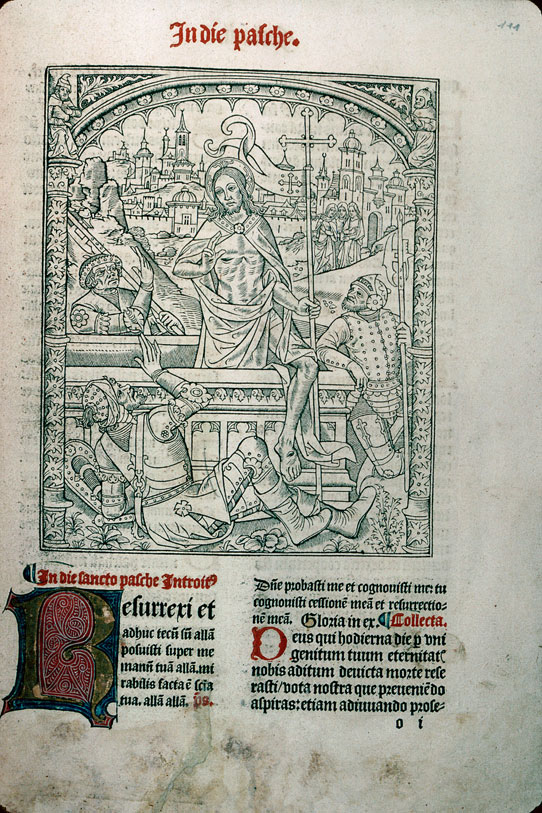 In die pasche.
111
¶In die sancto pasche Introitꝰ
Resurrexi et
adhuc tecũ sũ allã
posuisti super me
manũ tuã allã.mi
rabilis facta ẽ sc̃ia
tua. allã allã. p̃s.
Dñe probasti me et cognouisti me: tu
cognouisti cessionẽ meã et resurrectio-
nẽ meã. Gloria in ex. ¶Collecta.
Deus qui hodierna die ꝑ vni
genitum tuum eternitatꝭ
nobis aditum deuicta morte rese
rasti/vota nostra que preueniẽdo
aspiras: etiam adiuuando prose-
o i